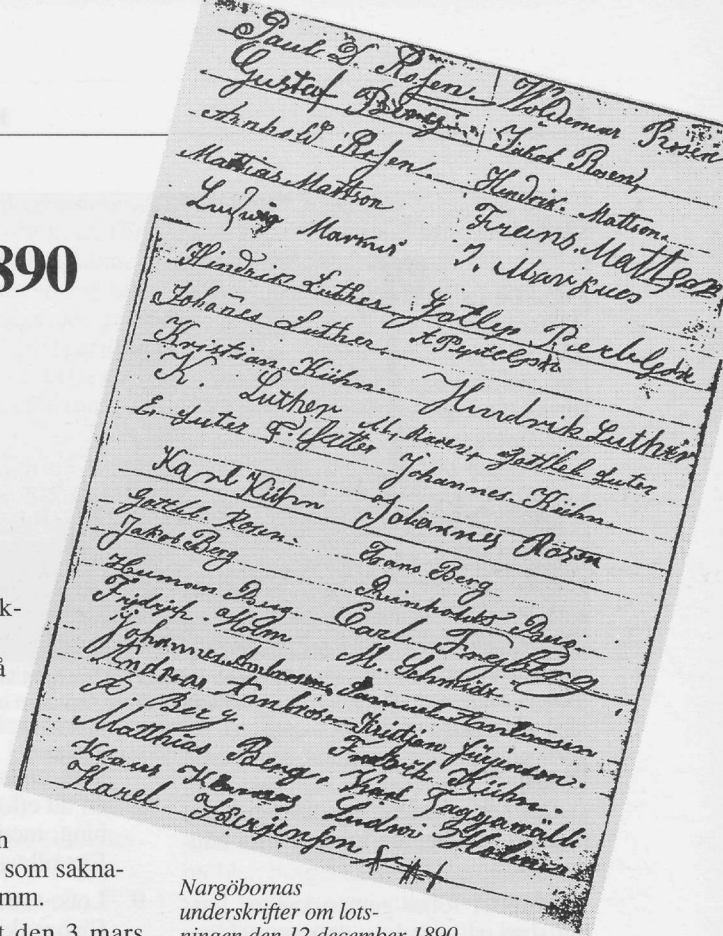 Paul D. Rosen. Woldemar Rosen
Gustaf Jakob Rosen,
Arnhold Rosen. Hendrik. Mattson.
Mattias Mattson Frans. Mattson
Ludwig Markus J. Markues
Hindrik Luther.
Johanes Luther.
Kristian Kühn. Hindrik Luther
K. Luther M. Rosen, Gottleb Luter
E. Luter F. Lutter Johannes Kühn.
Karl Kühn Johannes Rosen
Gottlib. Rosen. Frans Berg
Jakob Berg Reinholdt
Human Berg Carl Freyberg
Fridrich Holm M. Schmidt.
Johannes Ambrosen Samuel Ambrosen
Andreas Ambrosen Kristjan Jürjenson.
A. Berg. Fredrik Kühn.
Matthias Berg, Karl Taggawälli
Klaus Ludwi Holmer
Karel Jürjenson xxx
890
k-
å
n
som sakna-
mm.
t den 3 mars
Nargöbornas
underskrifter om lots-
ningen den 12 december 1890